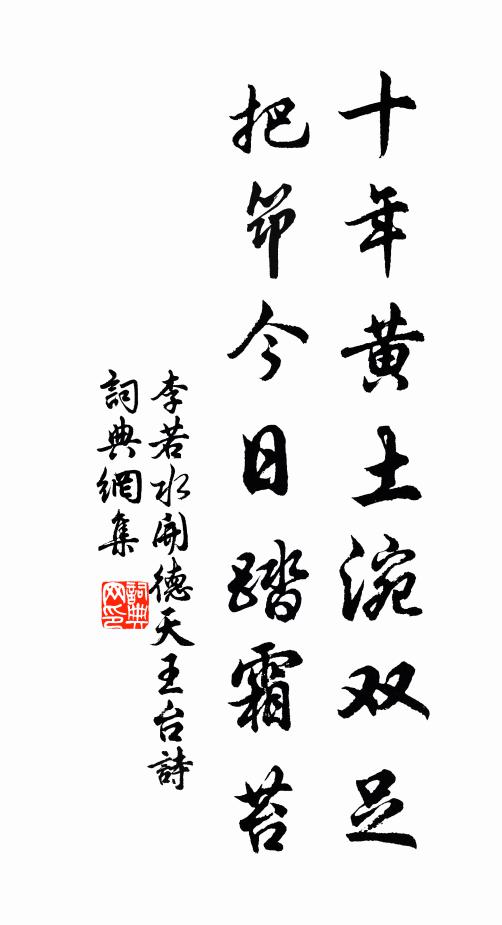 十年黄土涴双足
把笻今日踏霜苔
李若水開德天王台詩
詞典網集
詞典
网印